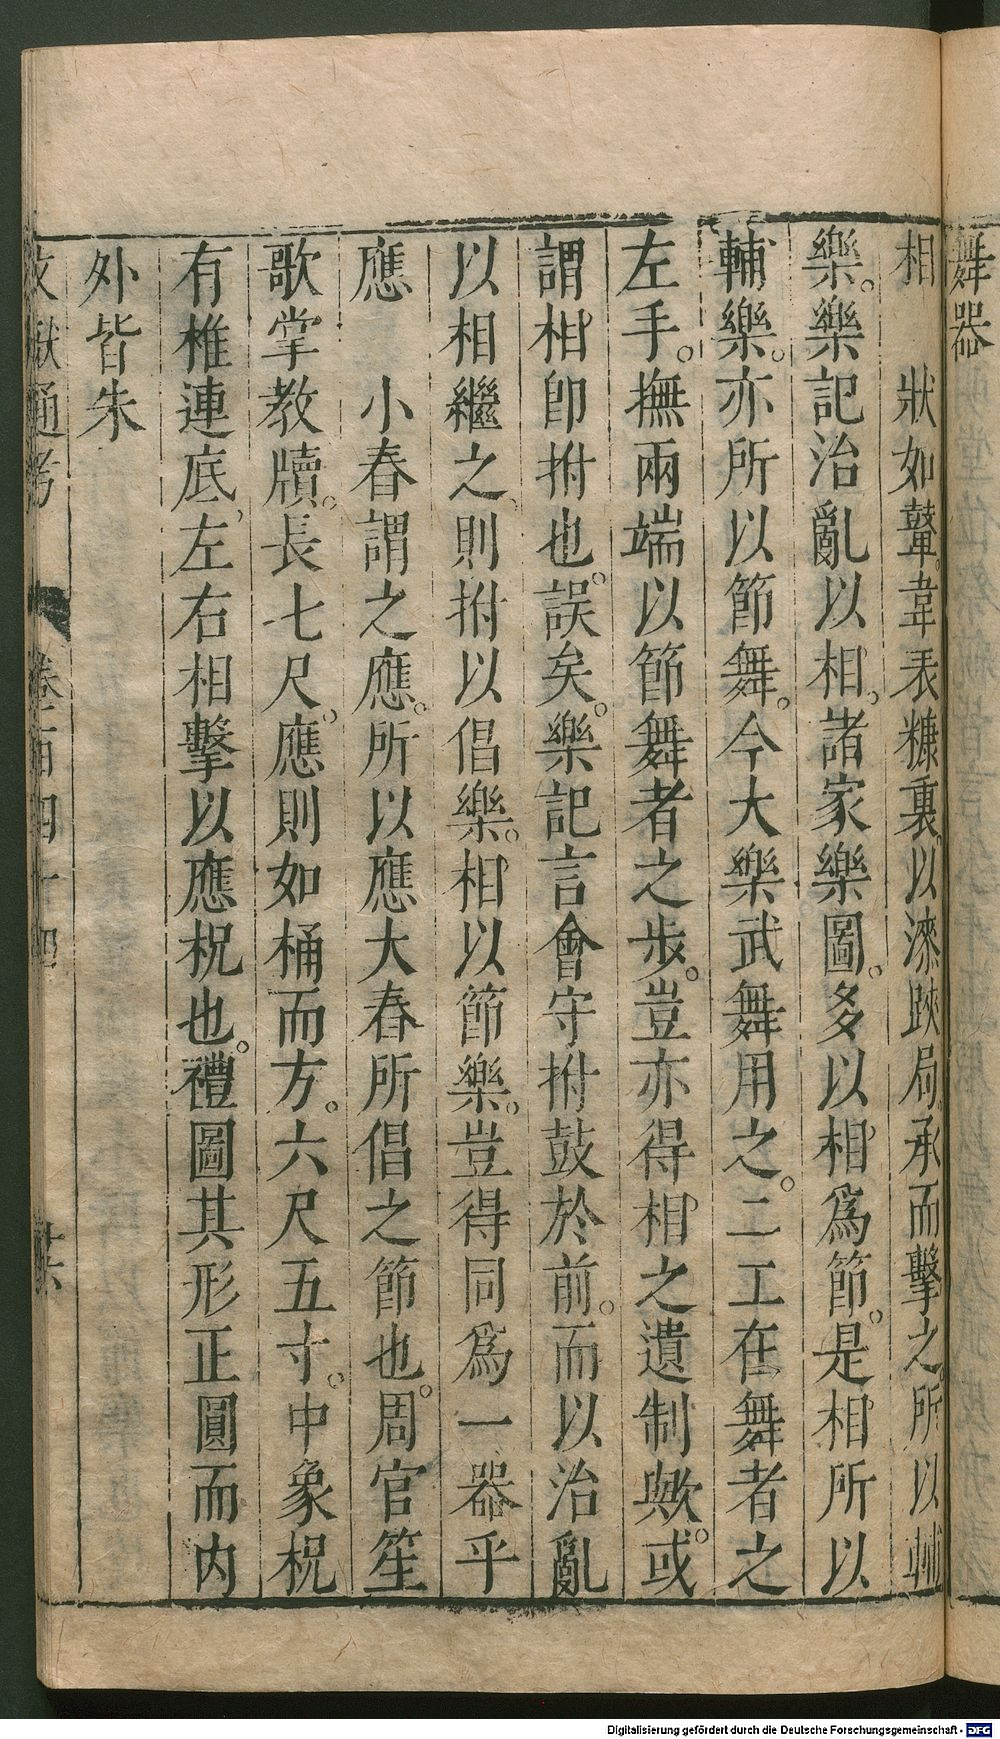 舞器
相　狀如鼙韋表糠裏以漆趺局承而擊之所以輔
樂樂記治亂以相諸家樂圖多以相爲節是相所以
輔樂亦所以節舞今大樂武舞用之二工在舞者之
左手撫兩端以節舞者之步豈亦得相之遺制歟或
謂相卽拊也誤矣樂記言會守拊鼓於前而以治亂
以相繼之則拊以倡樂相以節樂豈得同爲一器乎
應　小春謂之應所以應大春所倡之節也周官笙
歌掌教牘長七尺應則如桶而方六尺五寸中象柷
有椎連底左右相擊以應柷也禮圖其形正圓而内
外皆朱
文獻通考　卷一百四十四　廿六
Digitalisierung gefördert durch die Deutsche Forschungsgemeinschaft - DFG